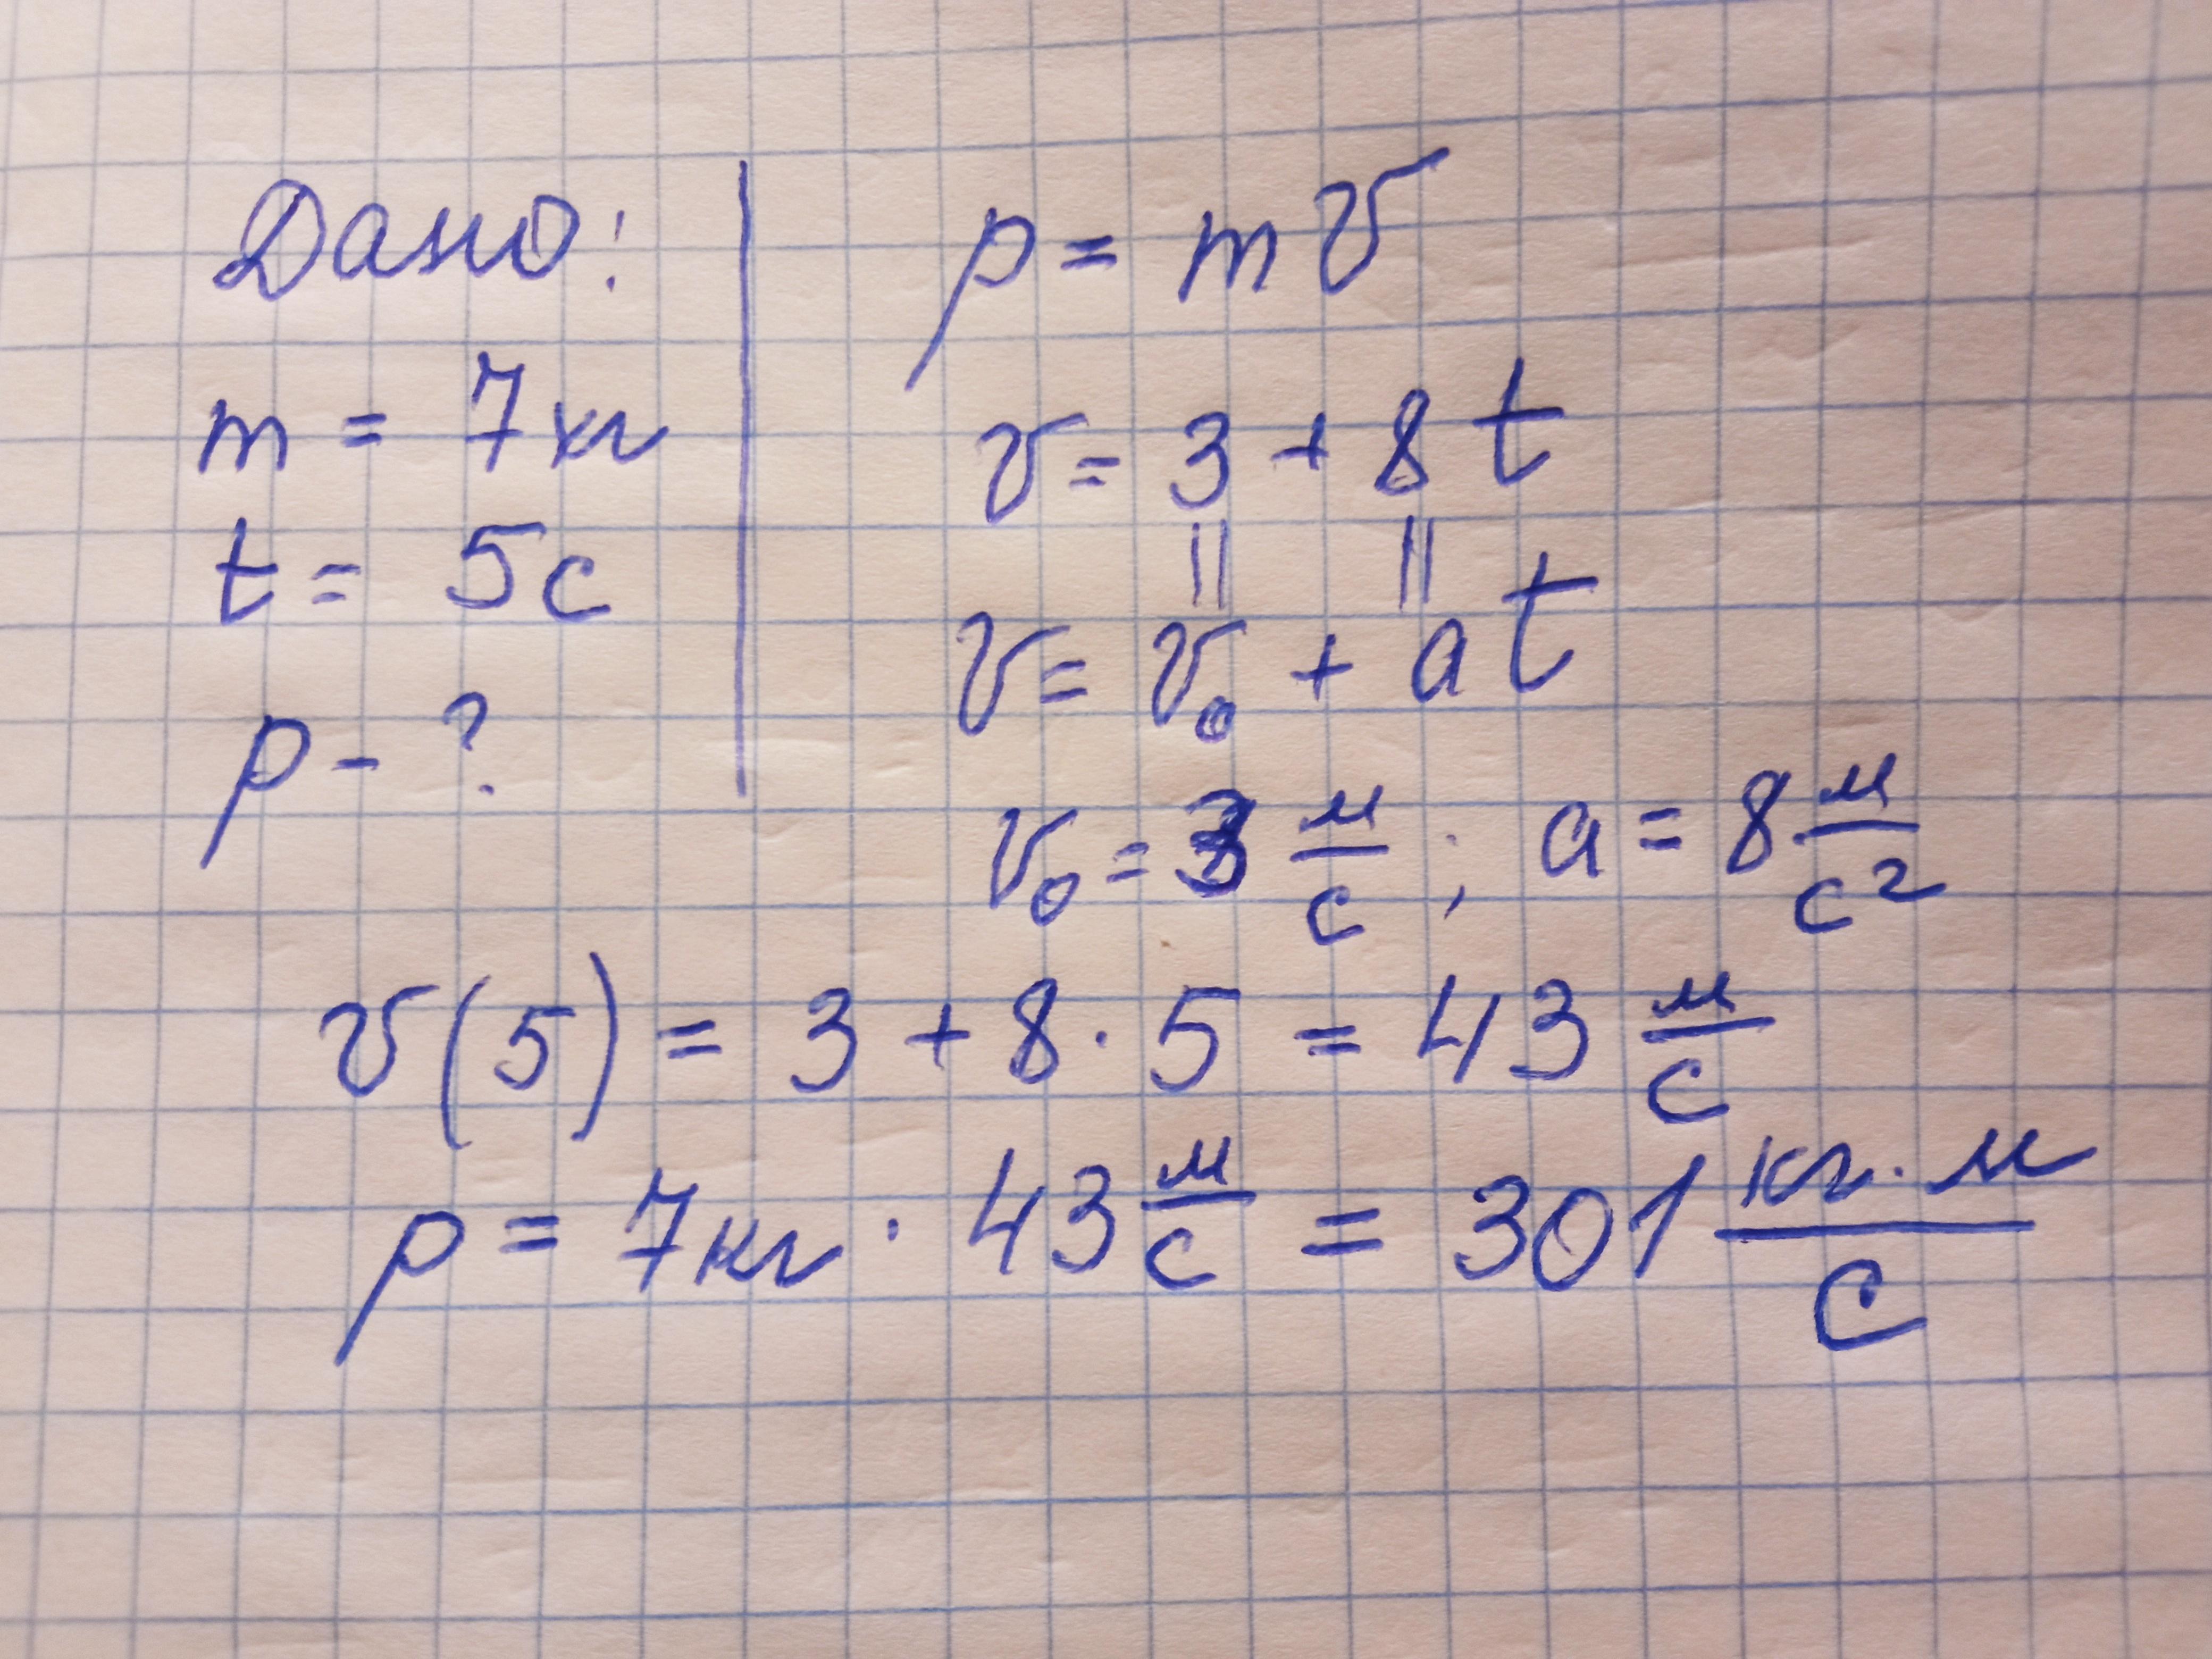 Дано:
m = 7 кг
t = 5 с
p - ?
p = mv
v = 3 + 8 t
|| ||
v = v₀ + a t
v₀ = 3 м/с ; a = 8 м/с²
v(5) = 3 + 8 · 5 = 43 м/с
p = 7 кг · 43 м/с = 301 кг·м/с